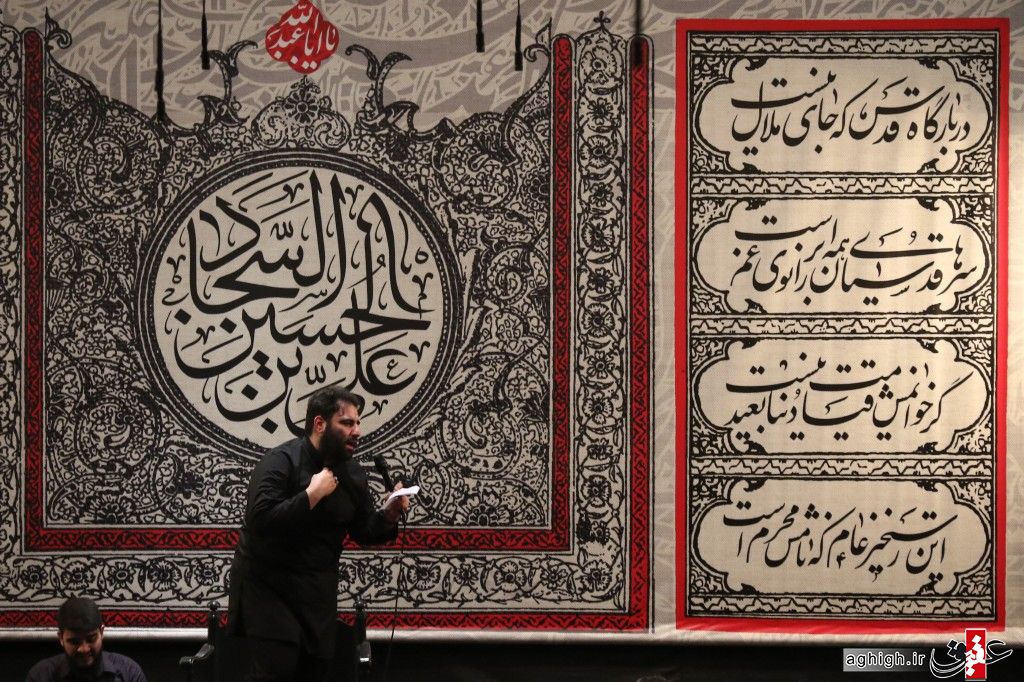 یا اباعبدالله
علی بن الحسین السجاد
در بارگاه قدس که جای ملال نیست
سرهای قدسیان همه بر زانوی غم است
گر خوانمش قیامت دنیا بعید نیست
این رستخیز عام که نامش محرم است
aghigh.ir
عقیق